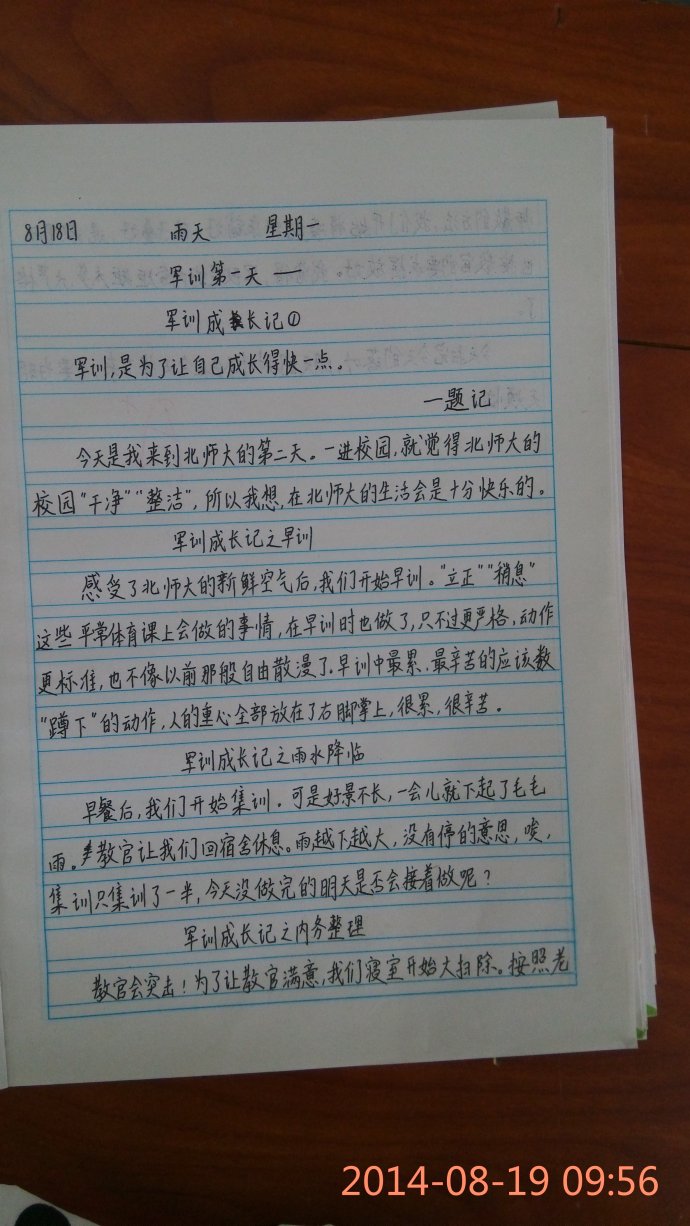 8月18日 雨天 星期一
军训第一天——
军训成长记①
军训,是为了让自己成长得快一点。
—题记
今天是我来到北师大的第二天。一进校园,就觉得北师大的
校园"干净""整洁",所以我想,在北师大的生活会是十分快乐的。
军训成长记之早训
感受了北师大的新鲜空气后,我们开始早训。"立正""稍息"
这些平常体育课上会做的事情,在早训时也做了,只不过更严格,动作
更标准,也不像以前那般自由散漫了.早训中最累、最辛苦的应该数
"蹲下"的动作,人的重心全部放在了右脚掌上,很累,很辛苦。
军训成长记之雨水降临
早餐后,我们开始集训.可是好景不长,一会儿就下起了毛毛
雨。教官让我们回宿舍休息。雨越下越大,没有停的意思,唉,
集训只集训了一半,今天没做完的明天是否会接着做呢?
军训成长记之内务整理
教官会突击!为了让教官满意,我们寝室开始大扫除。按照老
2014-08-19 09:56